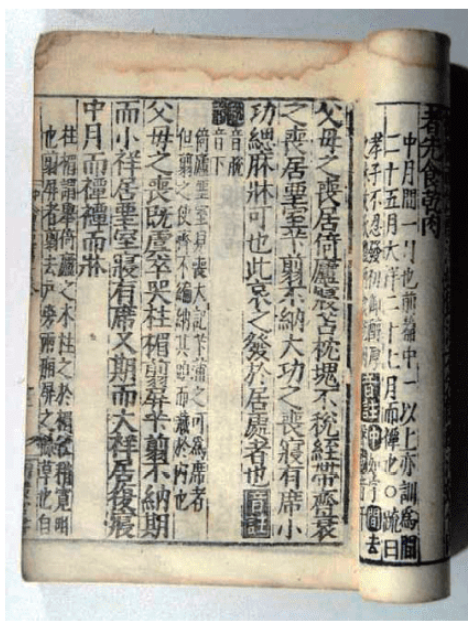 者先食乾肉
中月間一月也前篇中一以上亦訓為間
二十五月大祥二十七月而禫也○疏曰
孝子不忍發初御醇厚
音註中如字間去
父母之喪居倚廬寢苫枕塊不稅絰帶齊衰
之喪居堊室芐翦不納大功之喪寢有席小
功緦麻牀可也此哀之發於居處者也音註
稅音脫
芐音下
倚廬堊室見喪大記芐蒲之可為席者
但翦之使齊不編納其頭而藏於內也
父母之喪既虞卒哭柱楣翦屏芐翦不納期
而小祥居堊室寢有席又期而大祥居復寢
中月而禫禫而牀
柱楣謂舉倚廬之木柱之於楣使稍寬明
也翦屏者翦去戶旁兩廂屏之餘草也自